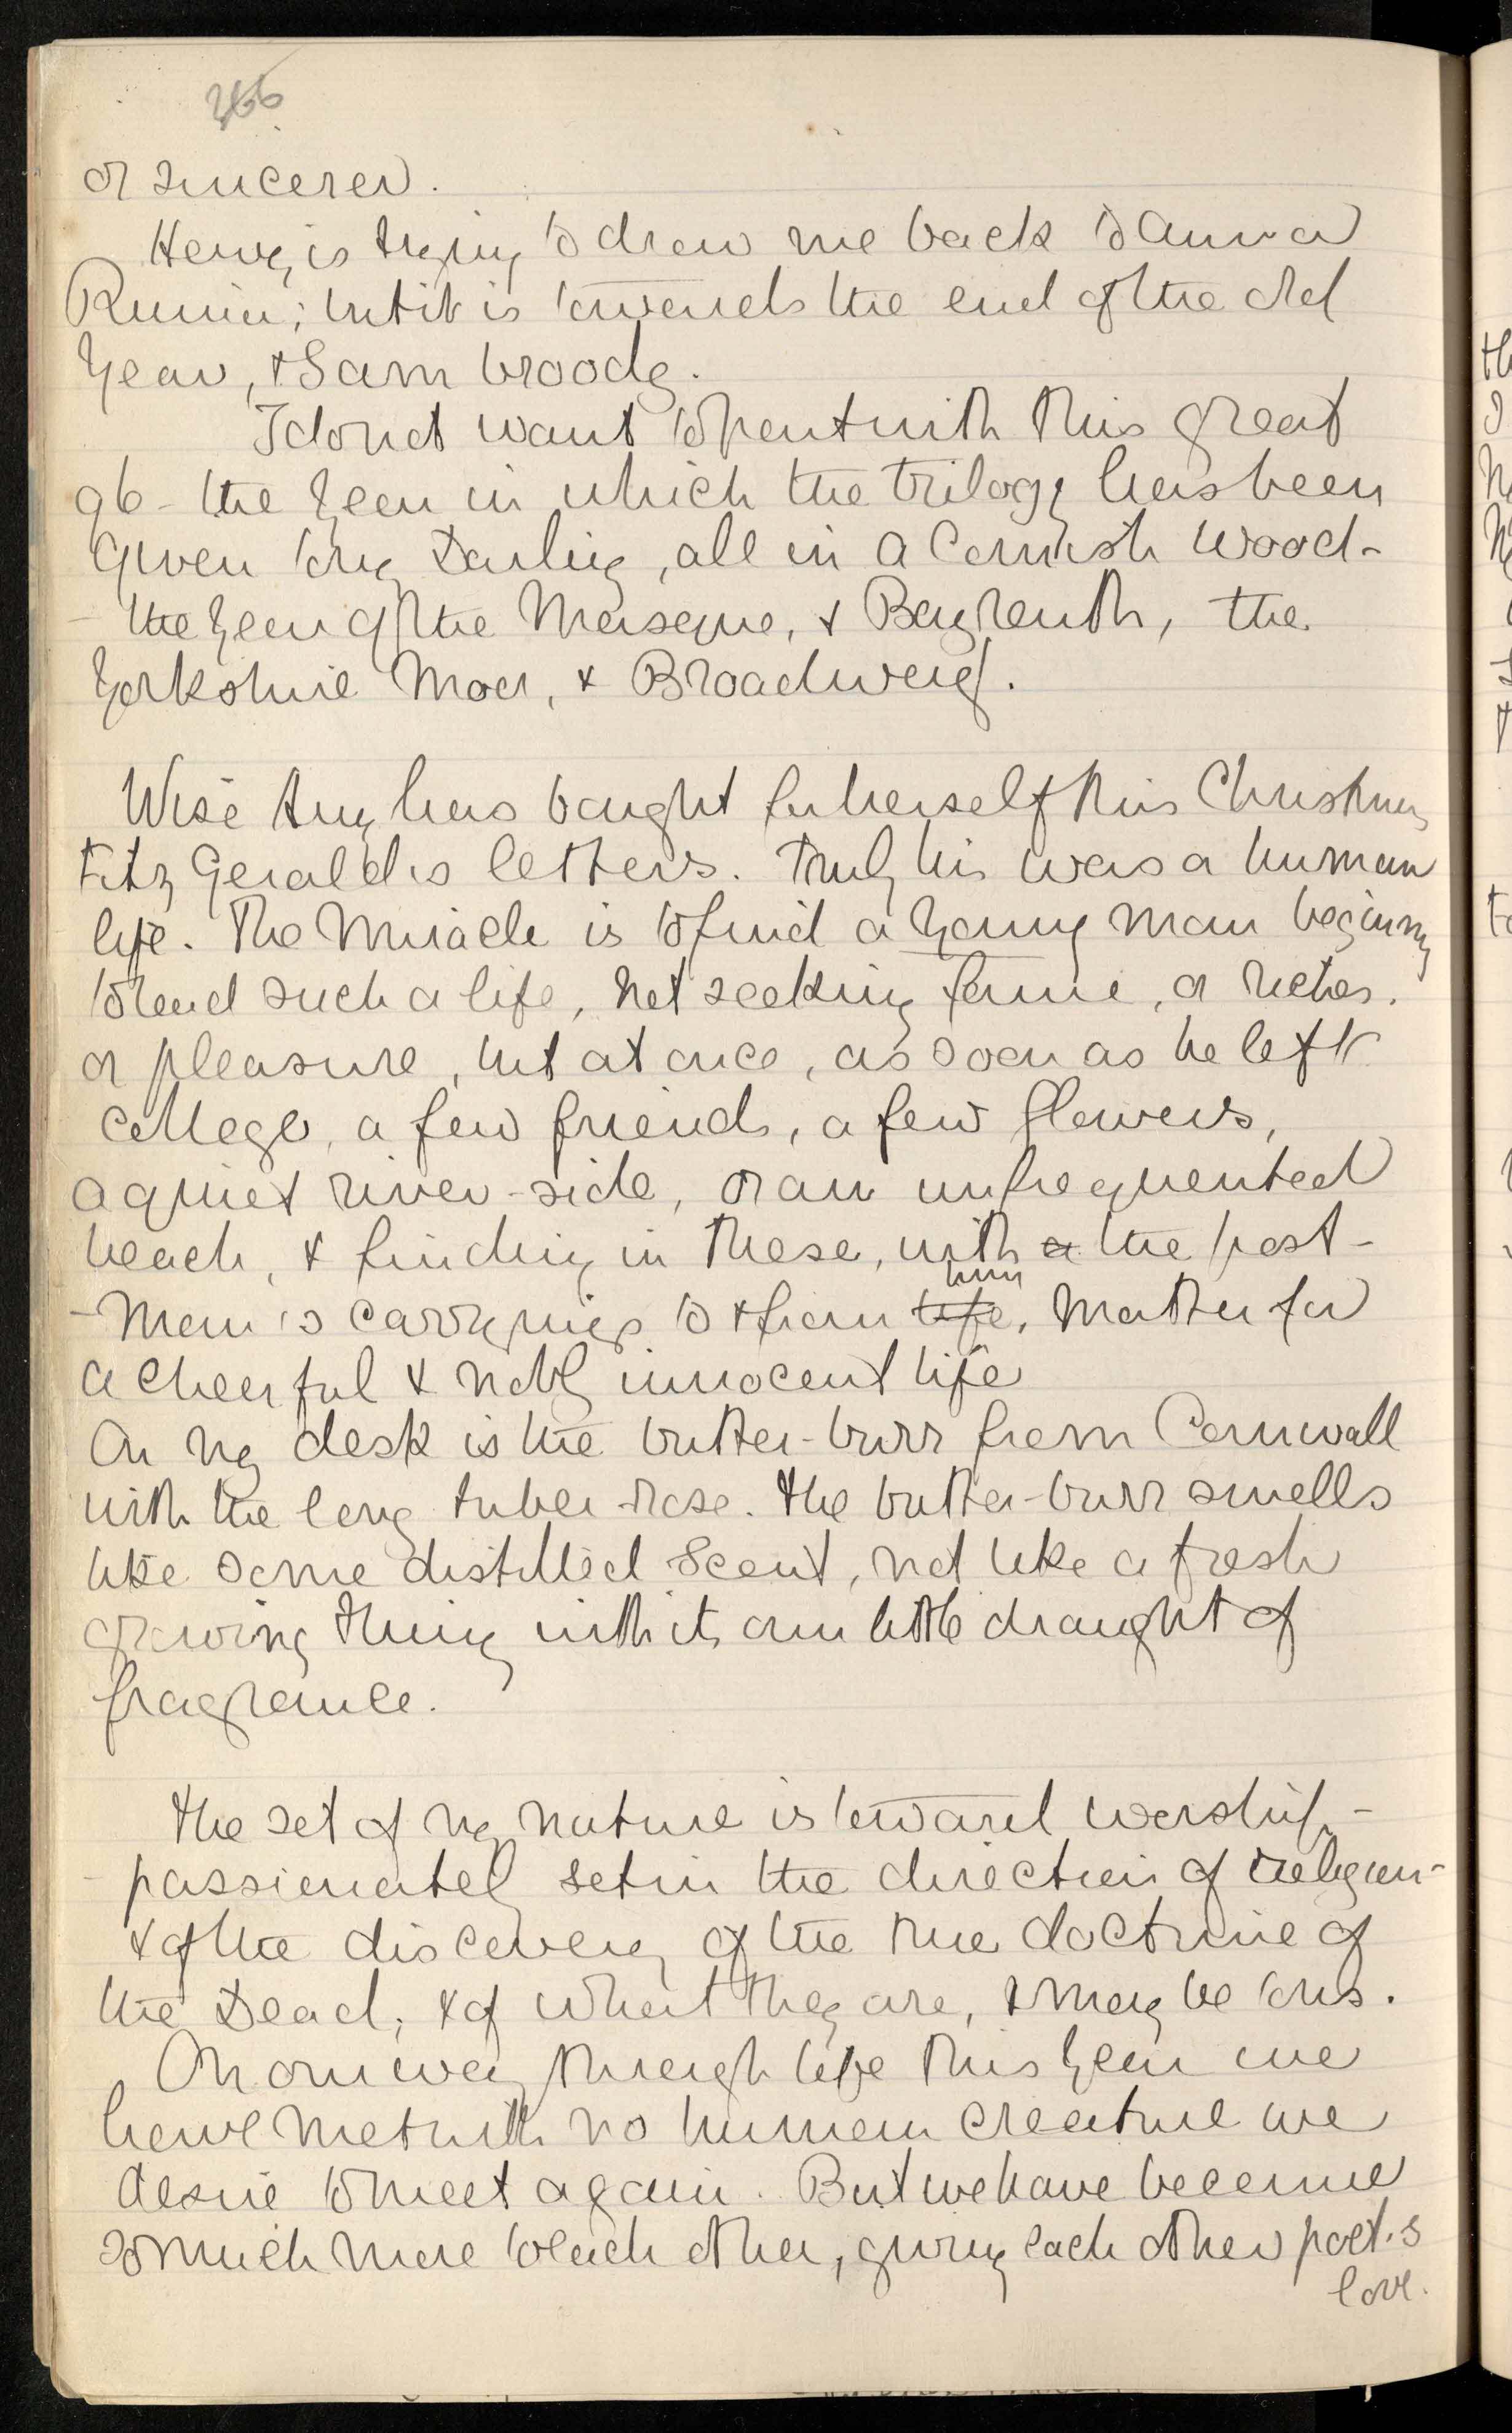 266
or sincerer.
Henry is trying to draw me back to Anna
Ruina; but it is towards the end of the old
year, & I am broody.
I do not want to part with this great
96 - the year in which the trilogy has been
given to my Darling, all in a Cornish wood -
- the year of the Masque, & Bayreuth, the
Yorkshire Moor, & Broadway.
Wise Amy has bought for herself this Christmas
Fitz Gerald's letters. Truly his was a human
life. The miracle is to find a young man beginning
to lead such a life, not seeking fame, or riches,
or pleasure, but at once, as soon as he left
college, a few friends, a few flowers,
a quiet river-side, or an unfrequented
beach, & finding in these, with a the post-
- man's carryings to & from life him, matter for
a cheerful & nobly innocent life
On my desk is the butter-burr from Cornwall
with the long tuber-rose. The butter-burr smells
like some distilled scent, not like a fresh
growing thing with its own little draught of
fragrance.
The set of my nature is toward worship -
- passionately set in the direction of religion -
& of the discovery of the true doctrine of
the Dead, & of what they are, & may be to us.
On our way through life this year we
have met with no human creature we
desire to meet again. But we have become
so much more to each other, giving each other poet's
love.